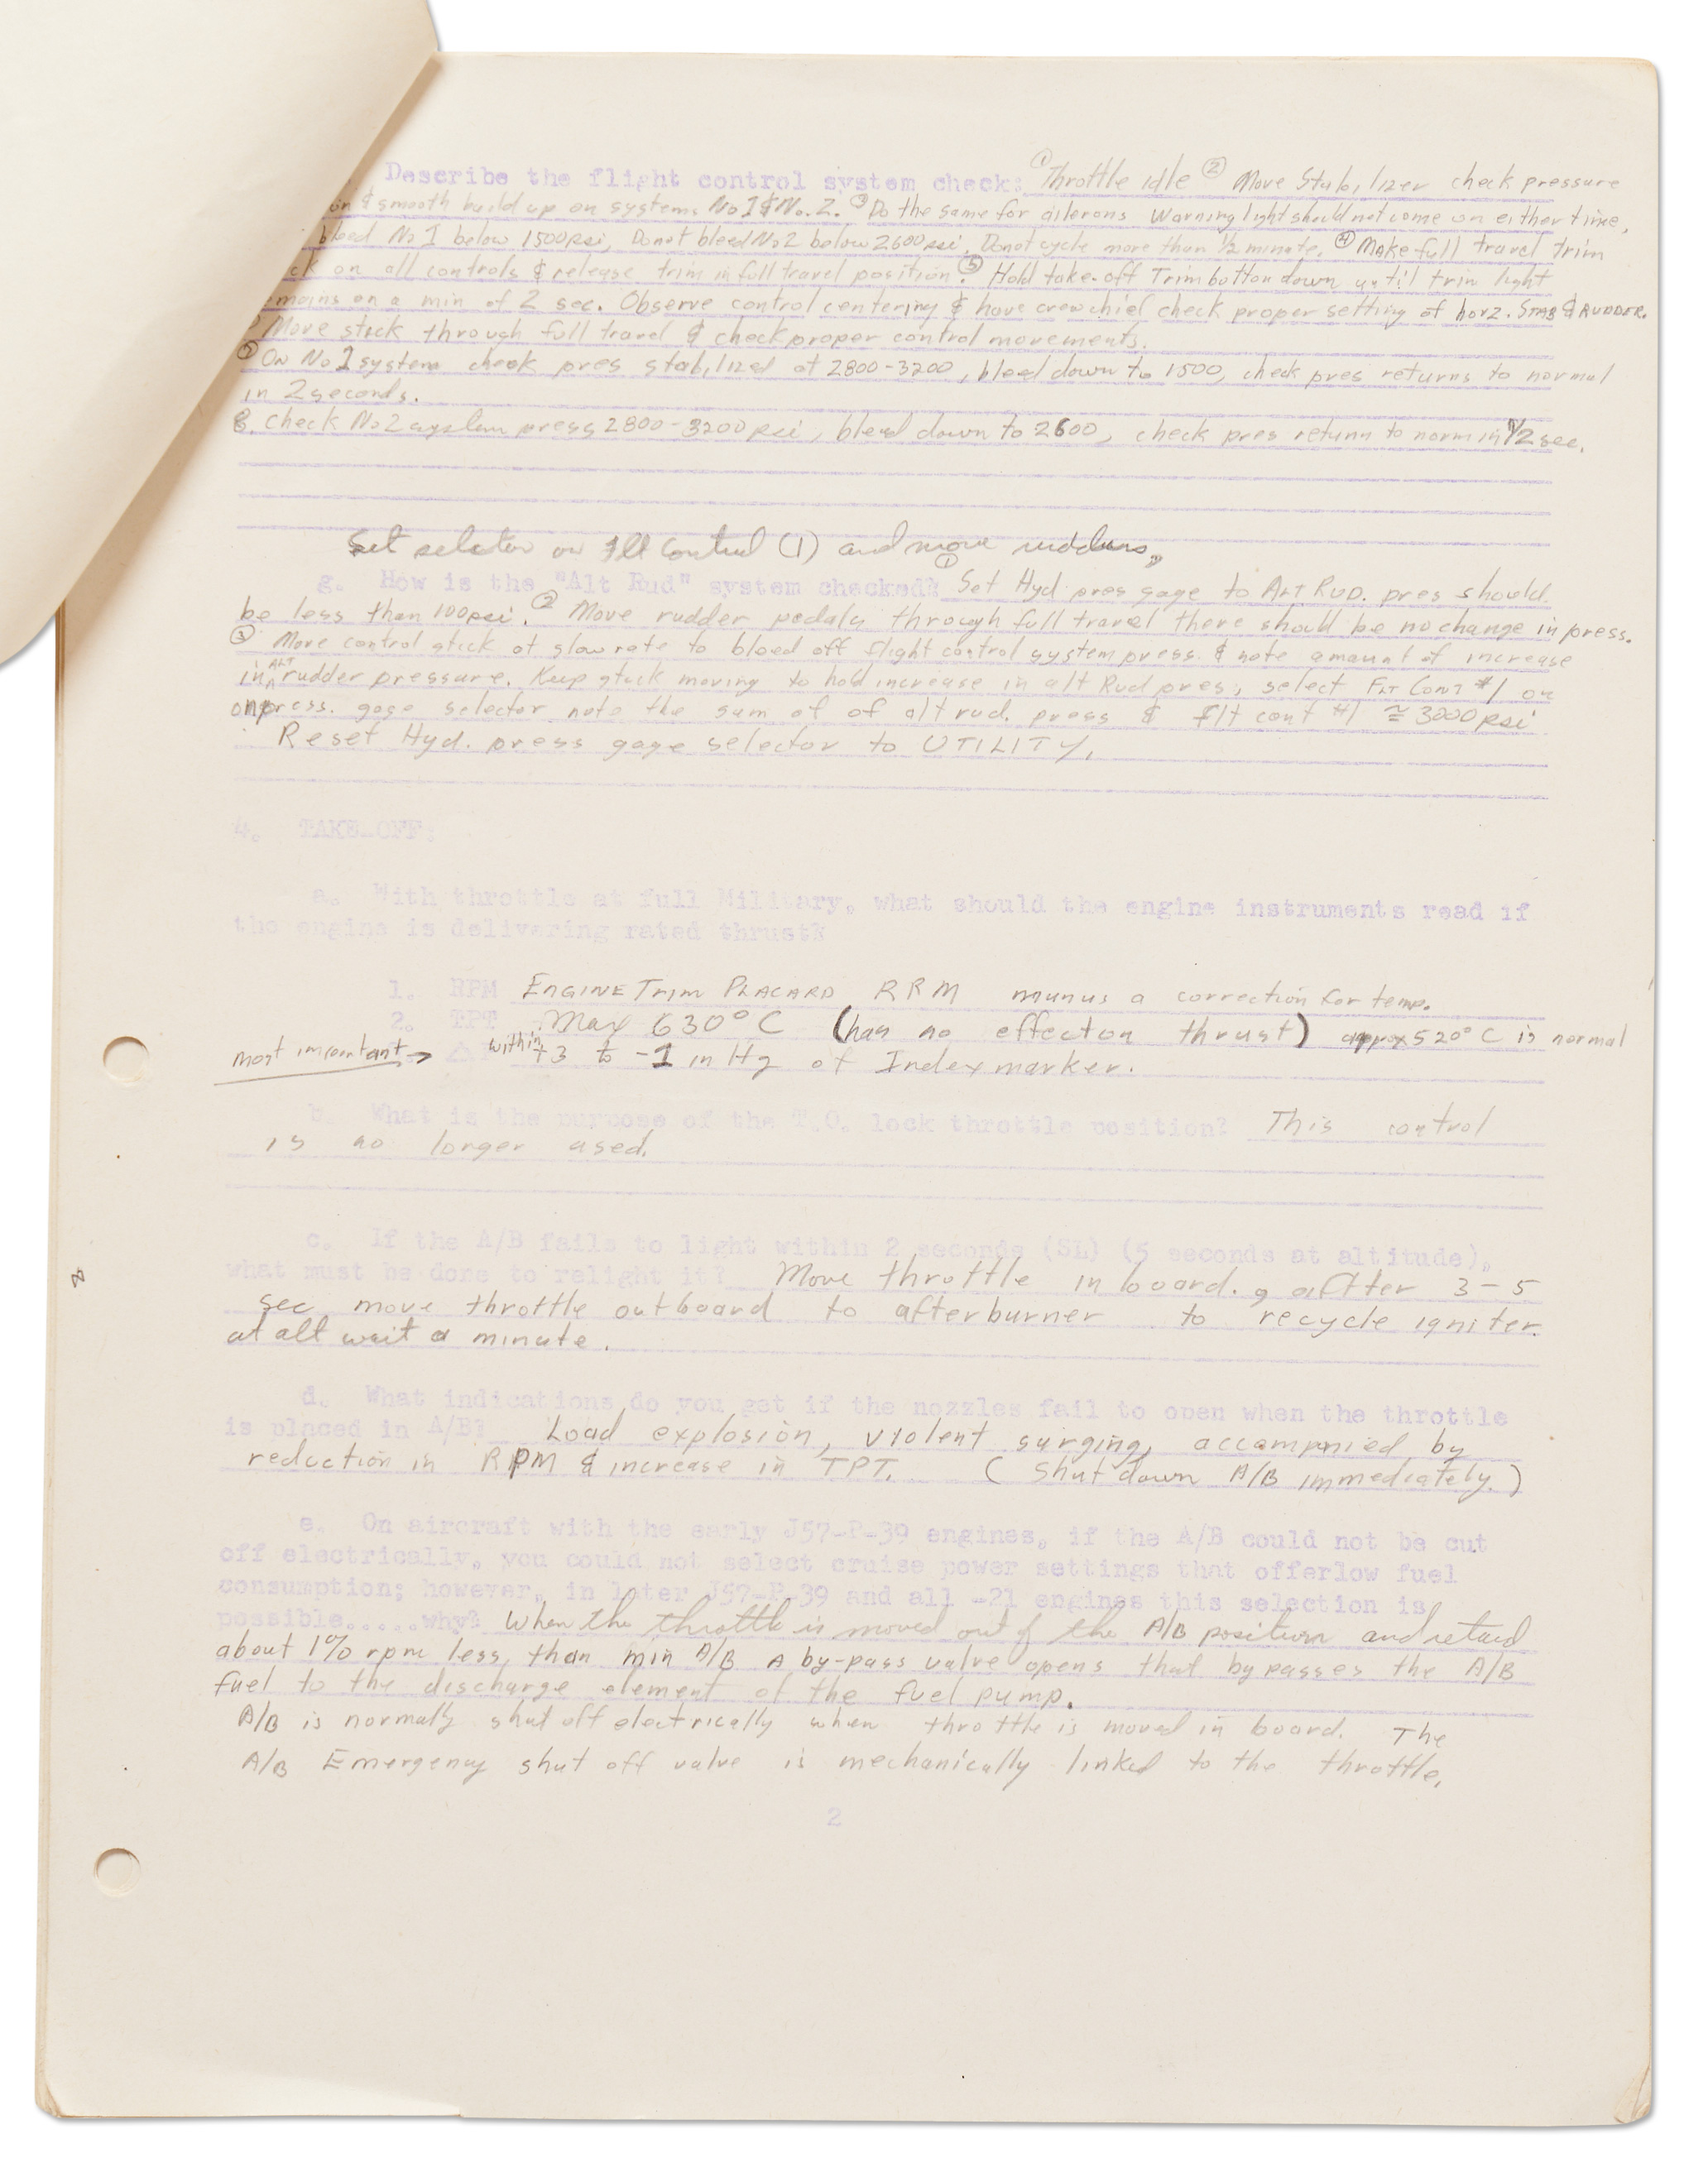 Describe the flight control system check: ① Throttle idle ② Move Stabilizer check pressure
& smooth build up on systems No 1 & No. 2. ③ Do the same for ailerons Warning light should not come on either time,
bleed No 1 below 1500 psi, Do not bleed No 2 below 2600 psi. Do not cycle more than 1/2 minute. ④ Make full travel trim
ck on all controls & release trim in full travel position. ⑤ Hold take-off Trim button down until trim light
emains on a min of 2 sec. Observe control centering & have crew chief check proper setting of horz. STAB & RUDDER.
Move stick through full travel & check proper control movements.
⑦ On No 1 system check pres stabilized at 2800-3200, bleed down to 1500, check pres returns to normal
in 2 seconds.
8. Check No 2 system press 2800-3200 psi, bleed down to 2600, check pres return to norm in 1/2 sec.
Set selector on flt Control (1) and move rudders.
g. How is the "Alt Rud" system checked? ① Set Hyd pres gage to ALT RUD. pres should
be less than 100 psi. ② Move rudder pedals through full travel there should be no change in press.
③ Move control stick at slow rate to bleed off flight control system press. & note amount of increase
in ALT rudder pressure. Keep stick moving to hold increase in alt Rud pres, select FLT CONT #1 on
on press. gage selector note the sum of of alt rud. press & flt cont #1 ≅ 3000 psi
Reset Hyd. press gage selector to UTILITY.
4. TAKE-OFF:
a. With throttle at full Military, what should the engine instruments read if
the engine is delivering rated thrust?
1. RPM ENGINE Trim PLACARD RRM munus a correction for temp.
2. TPT Max 630° C (has no effect on thrust) approx 520° C is normal
most important → within +3 to -1 in Hg of Index marker.
b. What is the purpose of the T.O. lock throttle position? This control
is no longer used.
c. If the A/B fails to light within 2 seconds (SL) (5 seconds at altitude),
what must be done to relight it? Move throttle in board., aftter 3-5
sec move throttle outboard to afterburner to recycle igniter.
at alt wait a minute.
d. What indications do you get if the nozzles fail to open when the throttle
is placed in A/B? Load explosion, violent surging, accompnied by
reduction in RPM & increase in TPT. (Shut down A/B immediately.)
e. On aircraft with the early J57-P-39 engines, if the A/B could not be cut
off electrically, you could not select cruise power settings that offerlow fuel
consumption; however, in later J57-P-39 and all -21 engines this selection is
possible.....why? When the throttle is moved out of the A/B position and retard
about 1% rpm less, than min A/B A by-pass valve opens that by passes the A/B
fuel to the discharge element of the fuel pump.
A/B is normally shut off electrically when throttle is moved in board. The
A/B Emergency shut off valve is mechanically linked to the throttle.
2